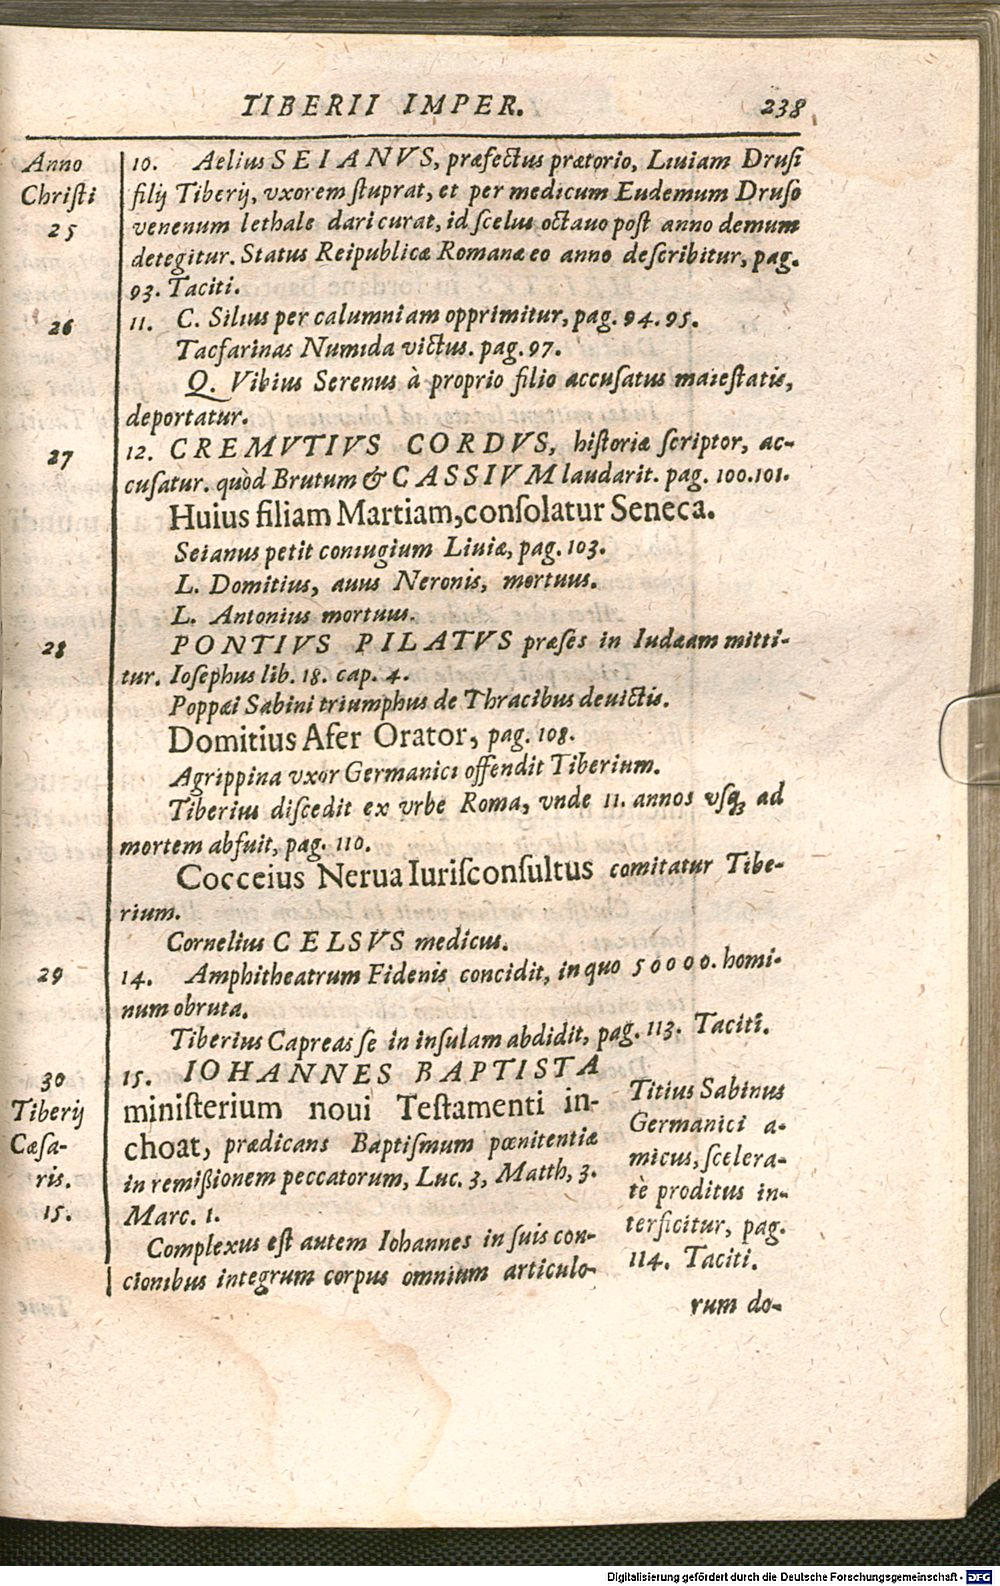 TIBERII IMPER. 238
Anno
Christi
25
10. Aelius SEIANVS, præfectus prætorio, Liuiam Drusi
filij Tiberij, vxorem stuprat, et per medicum Eudemum Druso
venenum lethale dari curat, id scelus octauo post anno demum
detegitur. Status Reipublicæ Romanæ eo anno describitur, pag.
93. Taciti.
26
11. C. Silius per calumniam opprimitur, pag. 94. 95.
Tacfarinas Numida victus. pag. 97.
Q. Vibius Serenus à proprio filio accusatus maiestatis,
deportatur.
27
12. CREMVTIVS CORDVS, historiæ scriptor, ac-
cusatur. quòd Brutum & CASSIVM laudarit. pag. 100.101.
Huius filiam Martiam, consolatur Seneca.
Seianus petit coniugium Liuiæ, pag. 103.
L. Domitius, auus Neronis, mortuus.
L. Antonius mortuus.
28
PONTIVS PILATVS præses in Iudæam mitti-
tur. Iosephus lib. 18. cap. 4.
Poppæi Sabini triumphus de Thracibus deuictis.
Domitius Afer Orator, pag. 108.
Agrippina vxor Germanici offendit Tiberium.
Tiberius discedit ex vrbe Roma, vnde 11. annos vsq; ad
mortem abfuit, pag. 110.
Cocceius Nerua Iurisconsultus comitatur Tibe-
rium.
Cornelius CELSVS medicus.
29
14. Amphitheatrum Fidenis concidit, in quo 50000. homi-
num obruta.
Tiberius Capreas se in insulam abdidit, pag. 113. Taciti.
30
Tiberij
Cæsa-
ris.
15.
15. IOHANNES BAPTISTA
ministerium noui Testamenti in-
choat, prædicans Baptismum pœnitentiæ
in remißionem peccatorum, Luc. 3, Matth, 3.
Marc. 1.
Complexus est autem Iohannes in suis con-
cionibus integrum corpus omnium articulo-
Titius Sabinus
Germanici a-
micus, scelera-
tè proditus in-
terficitur, pag.
114. Taciti.
rum do-
Digitalisierung gefördert durch die Deutsche Forschungsgemeinschaft - DFG